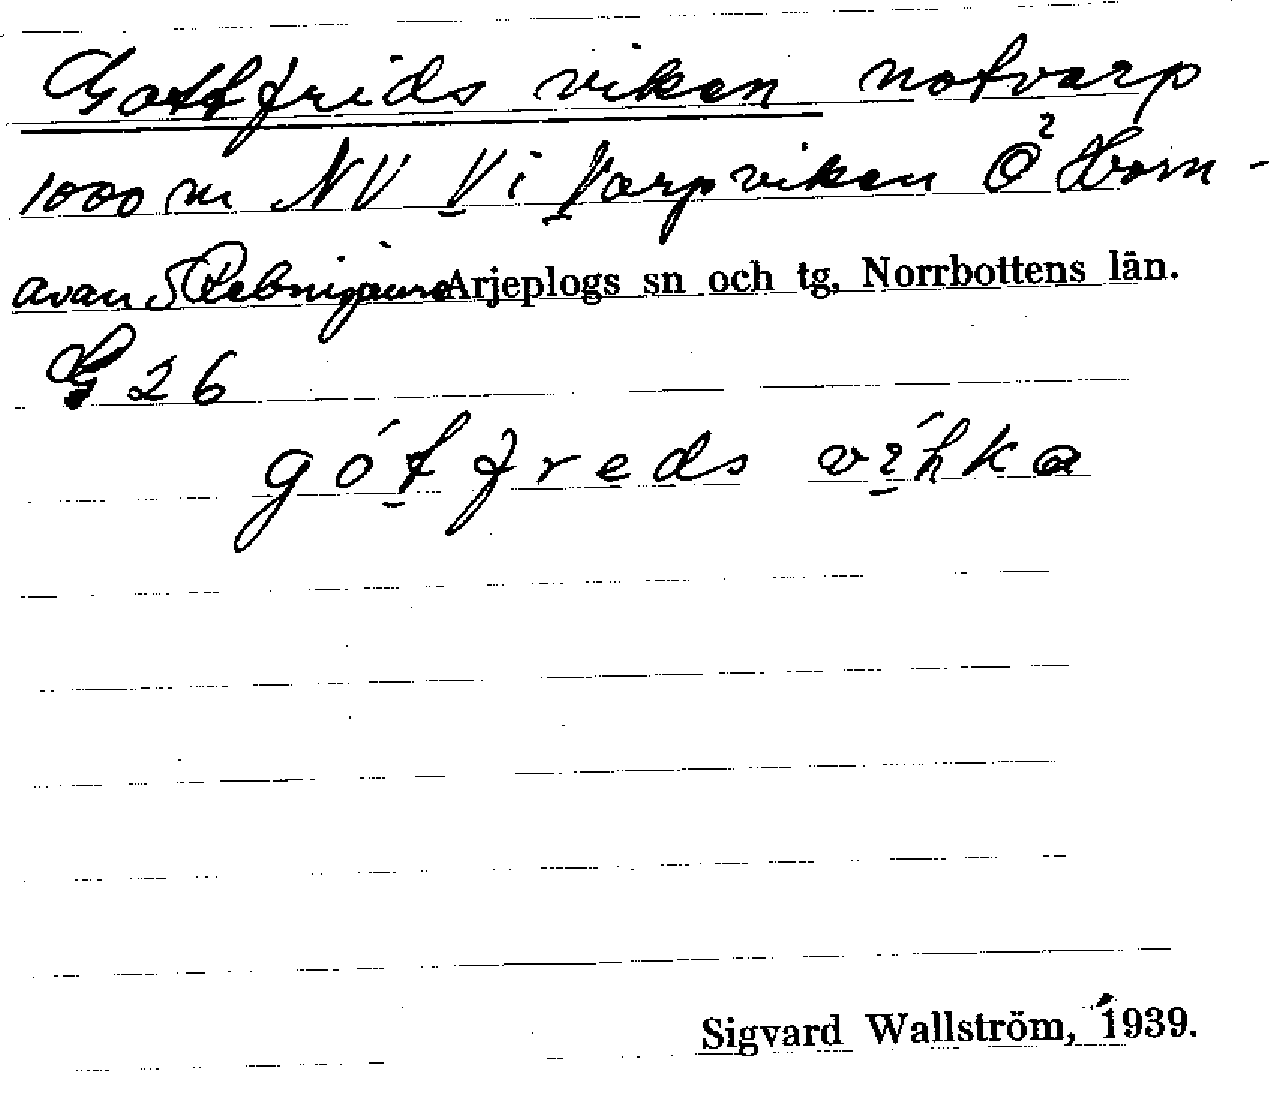 Gottfrids viken notvarp
1000 m NV V i Varpviken Ö Horn-
avan S Rebnisjaure Arjeplogs sn och tg, Norrbottens län.
G 26
gótfreds víhka
Sigvard Wallström, 1939.